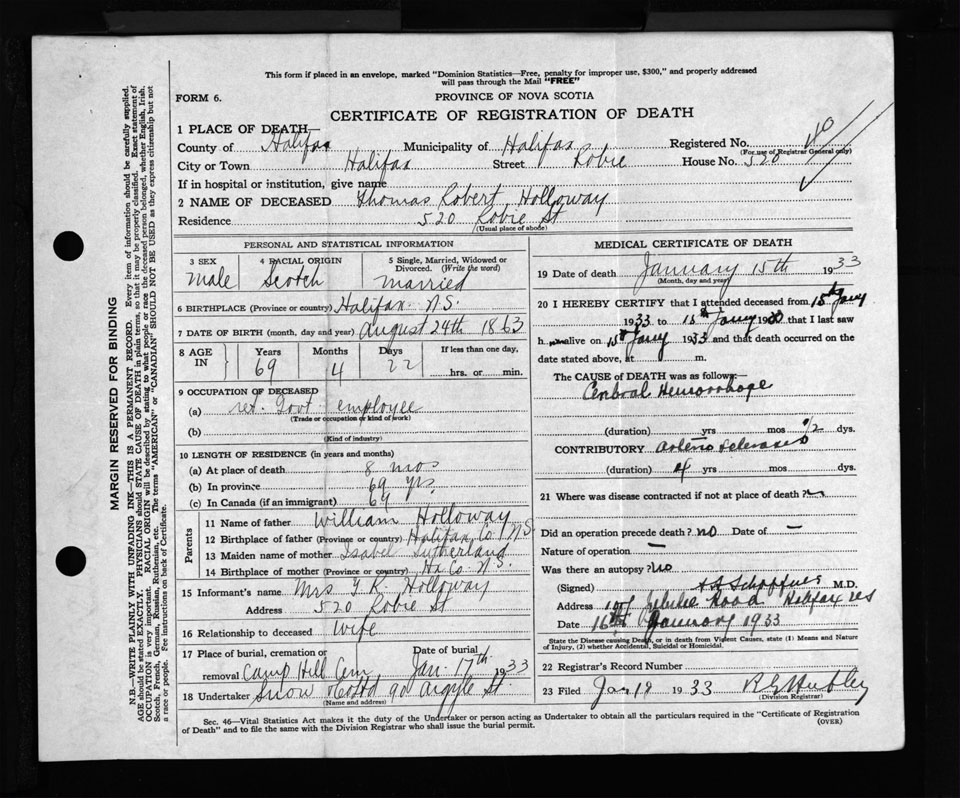 This form if placed in an envelope, marked "Dominion Statistics—Free, penalty for improper use, $300," and properly addressed
will pass through the Mail "FREE"
FORM 6.
PROVINCE OF NOVA SCOTIA
CERTIFICATE OF REGISTRATION OF DEATH
1 PLACE OF DEATH—
County of Halifax Municipality of Halifax Registered No.
(For use of Registrar General only)
City or Town Halifax Street Robie House No. 520
If in hospital or institution, give name
2 NAME OF DECEASED Thomas Robert Holloway
Residence 520 Robie St
(Usual place of abode)
PERSONAL AND STATISTICAL INFORMATION
3 SEX 4 RACIAL ORIGIN 5 Single, Married, Widowed or
Divorced. (Write the word)
Male Scotch married
6 BIRTHPLACE (Province or country) Halifax N.S.
7 DATE OF BIRTH (month, day and year) August 24th 1863
8 AGE IN Years Months Days If less than one day,
69 4 22 hrs. or min.
9 OCCUPATION OF DECEASED
(a) ret. Govt employee
(Trade or occupation or kind of work)
(b)
(Kind of industry)
10 LENGTH OF RESIDENCE (in years and months)
(a) At place of death 8 mos
(b) In province 69 yrs.
(c) In Canada (if an immigrant) 69
Parents
11 Name of father William Holloway
12 Birthplace of father (Province or country) Halifax Co. N.S.
13 Maiden name of mother Isabel Sutherland
14 Birthplace of mother (Province or country) Hx Co. N.S.
15 Informant's name Mrs T R. Holloway
Address 520 Robie St
16 Relationship to deceased Wife
17 Place of burial, cremation or Date of burial
removal Camp Hill Cem Jan. 17th 1933
18 Undertaker Snow 90 Argyle St
(Name and address)
MEDICAL CERTIFICATE OF DEATH
19 Date of death January 15th 1933
(Month, day and year)
20 I HEREBY CERTIFY that I attended deceased from 15th Jany
1933 to 15th Jany 19 that I last saw
h alive on 15th Jany 1933 and that death occurred on the
date stated above, at m.
The CAUSE of DEATH was as follows:—
Cerebral Hemorrhage
(duration) yrs mos 1/2 dys.
CONTRIBUTORY Arterio Sclerosis
(duration) 4 yrs mos dys.
21 Where was disease contracted if not at place of death?
Did an operation precede death? no Date of —
Nature of operation —
Was there an autopsy? No
(Signed) M.D.
Address Jubilee Road Halifax NS
Date 16th January 1933
State the Disease causing Death, or in death from Violent Causes, state (1) Means and Nature
of Injury, (2) whether Accidental, Suicidal or Homicidal.
22 Registrar's Record Number
23 Filed Jan 18 1933
(Division Registrar)
Sec. 46—Vital Statistics Act makes it the duty of the Undertaker or person acting as Undertaker to obtain all the particulars required in the "Certificate of Registration
of Death" and to file the same with the Division Registrar who shall issue the burial permit. (OVER)
MARGIN RESERVED FOR BINDING
N.B.—WRITE PLAINLY WITH UNFADING INK—THIS IS A PERMANENT RECORD. Every item of information should be carefully supplied.
AGE should be stated EXACTLY. PHYSICIANS should STATE CAUSE OF DEATH in plain terms, so that it may be properly classified. Exact statement of
OCCUPATION is very important. RACIAL ORIGIN will be described by stating to what people or race the deceased person belonged, whether English, Irish,
Scotch, French, German, Russian, Ruthenian, etc. The terms "AMERICAN" or "CANADIAN" SHOULD NOT BE USED as they express citizenship but not
a race or people. Fee instructions on back of Certificate.